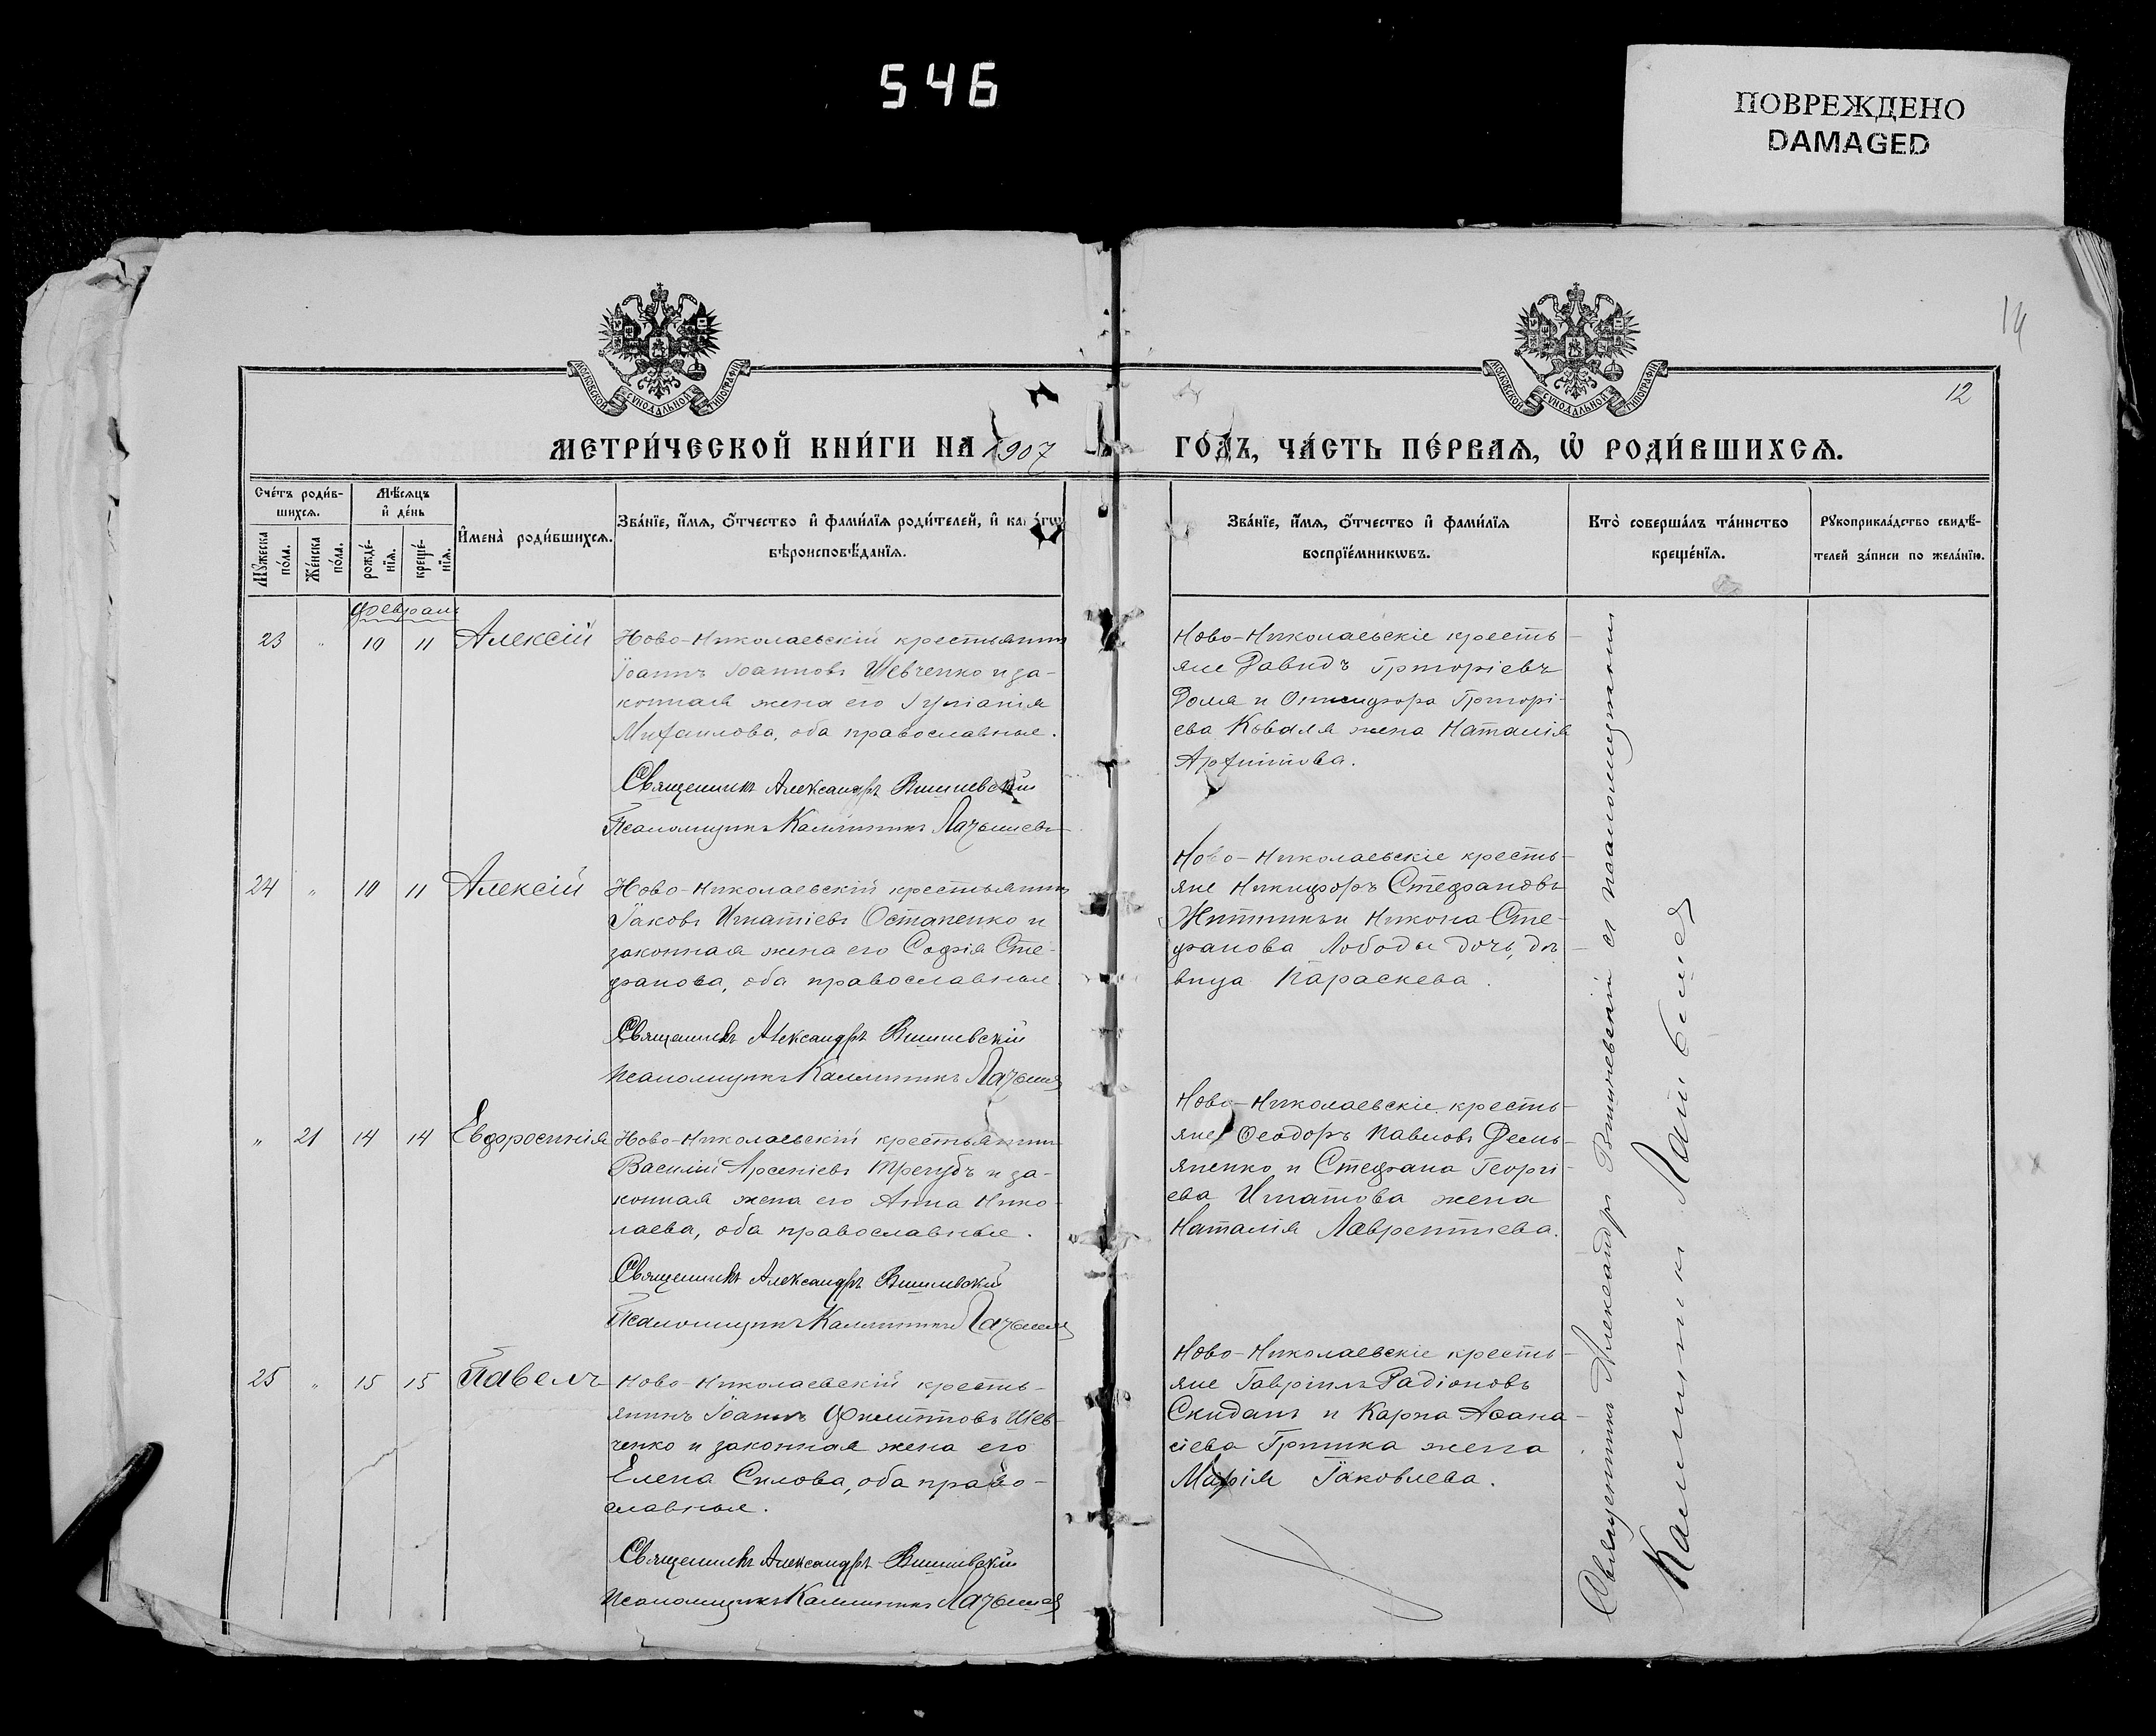 546
ПОВРЕЖДЕНО
DAMAGED
14
12
МОСКОВСКОЙ СѴНОДАЛЬНОЙ ТИПОГРАФІИ
МОСКОВСКОЙ СѴНОДАЛЬНОЙ ТИПОГРАФІИ
МЕТРИ́ЧЕСКОЙ КНИ́ГИ НА 1907
ГО́ДЪ, ЧА́СТЬ ПЕ́РВАѦ, Ѡ҆ РОДИ́ВШИХСѦ.
Сче́тъ роди́в-
шихсѧ.
Мѣ́сѧцъ
и҆ де́нь
Мꙋ́жеска
по́ла.
Же́нска
по́ла.
рожде́-
нїѧ.
креще́-
нїѧ.
И҆мена̀ роди́вшихсѧ.
Зва́нїе, и҆́мѧ, ѻ҆́тчество и҆ фами́лїѧ роди́телей, и҆ како́гѡ
вѣроисповѣ́данїѧ.
Зва́нїе, и҆́мѧ, ѻ҆́тчество и҆ фами́лїѧ
воспрїе́мникѡвъ.
Кто̀ соверша́лъ та́инство
креще́нїѧ.
Рꙋкоприкла́дство свидѣ́-
телей за́писи по жела́нїю.
Февраль
23 " 10 11 Алексій
Ново-Николаевскій крестьянинъ
Іоаннъ Іоанновъ Шевченко и за-
конная жена его Іуліанія
Михаилова, оба православные.
Священникъ Александръ Вишневскій
Псаломщикъ Калинникъ
Ново-Николаевскіе кресть-
яне Давидъ Григоріевъ
Дома и Онисифора Григорі-
ева Коваля жена Наталія
Архипова.
24 " 10 11 Алексій
Ново-Николаевскій крестьянинъ
Іаковъ Игнатіевъ Остапенко и
законная жена его Софія Сте-
фанова, оба православные.
Священникъ Александръ Вишневскій
Псаломщикъ Калинникъ
Ново-Николаевскіе кресть-
яне Никифоръ Стефановъ
Житникъ и Никона Сте-
фанова Лободы дочь, дѣ-
вица Параскева.
" 21 14 14 Евфросинія
Ново-Николаевскій крестьянинъ
Василій Арсеніевъ Трегубъ и за-
конная жена его Анна Нико-
лаева, оба православные.
Священникъ Александръ Вишневскій
Псаломщикъ Калинникъ
Ново-Николаевскіе кресть-
яне Ѳеодоръ Павловъ Демь-
яненко и Стефана Георгі-
ева Игнатова жена
Наталія Лаврентіева.
25 " 15 15 Павелъ
Ново-Николаевскій кресть-
янинъ Іоаннъ Филипповъ Шев-
ченко и законная жена его
Елена Силова, оба право-
славные.
Священникъ Александръ Вишневскій
Псаломщикъ Калинникъ
Ново-Николаевскіе кресть-
яне Гавріилъ Радіоновъ
Скиданъ и Карпа Аѳана-
сіева Гриника жена
Марія Іаковлева.
Священникъ Александръ Вишневскій съ псаломщикомъ
Калинникъ